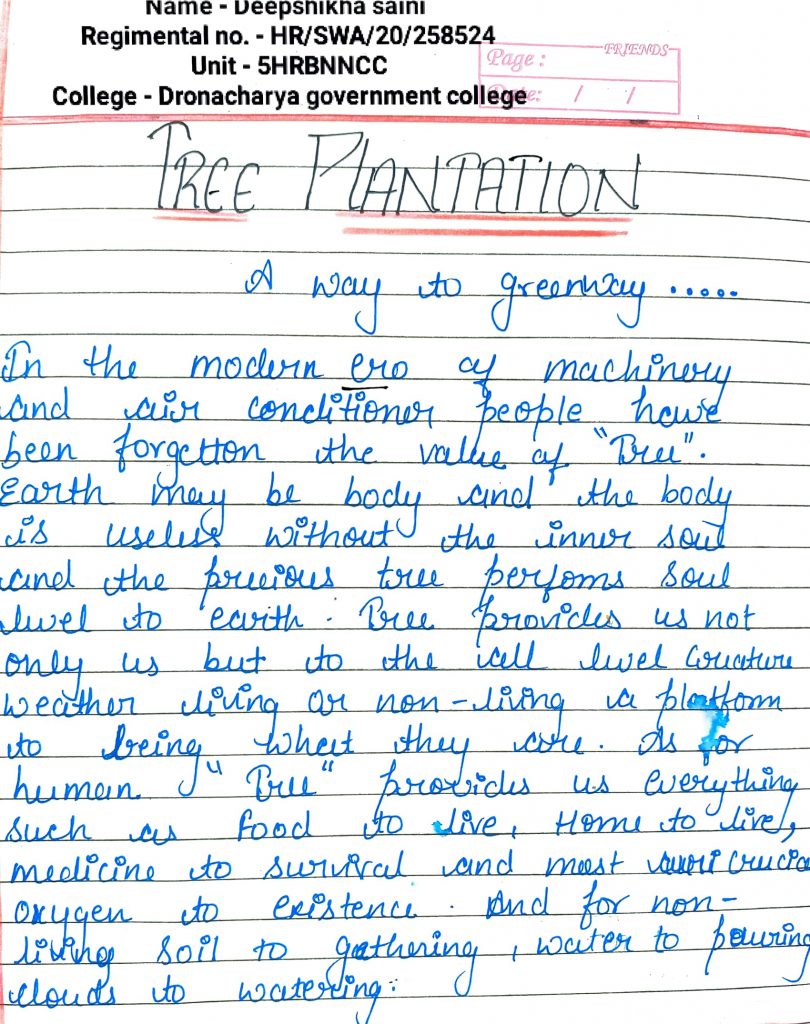 Name - Deepshikha saini
Regimental no. - HR/SWA/20/258524
Unit - 5HRBNNCC
College - Dronacharya government college
Page :
FRIENDS
Date: / /
TREE PLANTATION
A way to greenway .....
In the modern era of machinery
and air conditioner people have
been forgetton the value of "Tree".
Earth may be body and the body
is useless without the inner soul
and the precious tree perfoms soul
level to earth. Tree provides us not
only us but to the all level creature
weather living or non-living a platform
to being what they are. As for
human "Tree" provides us everything
such as food to live, Home to live,
medicine to survival and most crucia
oxygen to existence. And for non-
living soil to gathering, water to pouring
clouds to watering.